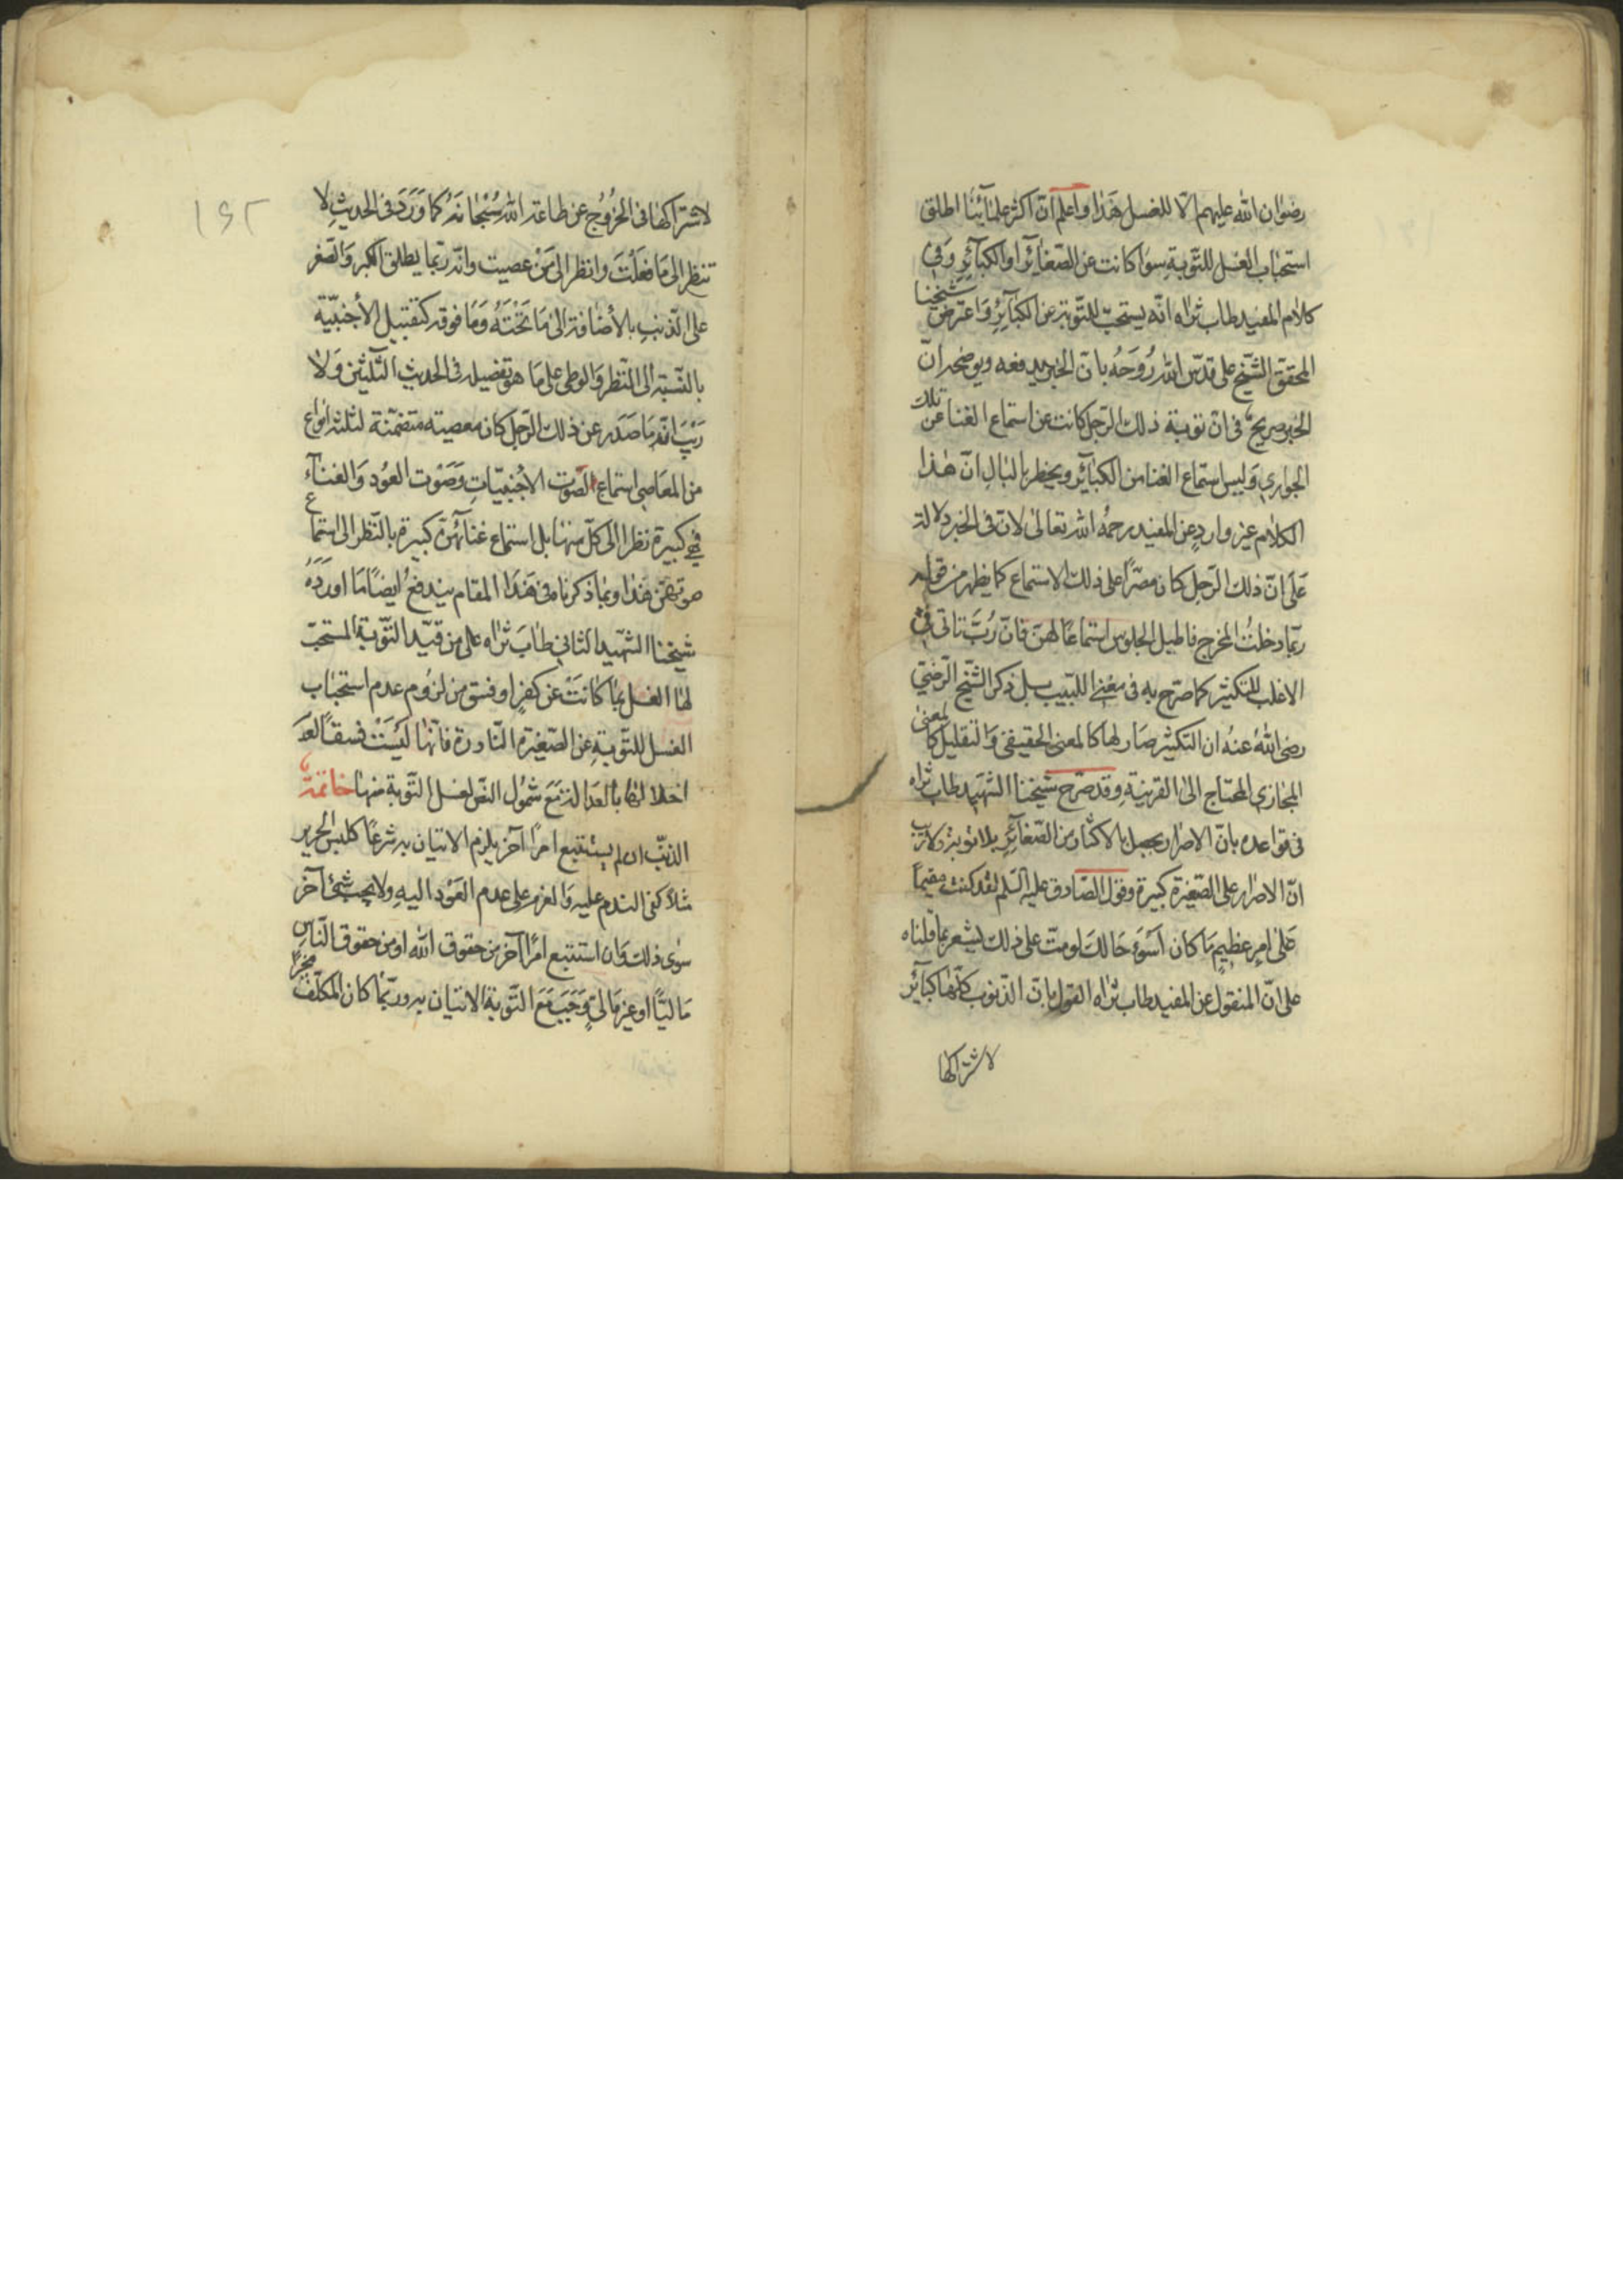 رضوان الله عليهم الا للغسل هذا واعلم ان اكثر علمائنا اطلق
استحباب الغسل للتوبة سوا كانت عن الصغائر او الكبائر وفى
كلام المفيد طاب ثراه انه يستحب للتوبة عن الكبائر واعترض شيخنا
المحقق الشيخ على قدس الله روحه بان الخبر يدفعه ويوضحه ان
الخبر صريح فى ان توبة ذلك الرجل كانت عن استماع الغنا عن تلك
الجوارى وليس استماع الغنا من الكبائر ويخطر بالبال ان هذا
الكلام غير وارد عن المفيد رحمه الله تعالى لان فى الخبر دلالة
على ان ذلك الرجل كان مصرا على ذلك الاستماع كما يظهر من قوله
ربما دخلت المخرج فاطيل الجلوس استماعا لهن فان رب تاتى فى
الاغلب للتكثير كما صرح به فى مغنى اللبيب بل ذكر الشيخ الرضى
رضى الله عنه ان التكثير صار لها كالمعنى الحقيقى والتقليل كالمعنى
المجازى المحتاج الى القرينة وقد صرح شيخنا الشهيد طاب ثراه
فى قواعده بان الاصرار يحصل بالاكثار من الصغائر بلا توبة ولا ريب
ان الاصرار على الصغيرة كبيرة وقول الصادق عليه السلم لقد كنت مقيما
على امر عظيم ما كان اسوء حالك لو مت على ذلك يشعر بما قلناه
على ان المنقول عن المفيد طاب ثراه القول بان الذنوب كلها كبائر
لاشتراكها
١٤٢
لاشتراكها فى الخروج عن طاعة الله سبحانه كما ورد فى الحديث لا
تنظر الى ما فعلت وانظر الى من عصيت وانه ربما يطلق الكبر والصغر
على الذنب بالأضافة الى ما تحته وما فوقه كتقبيل الأجنبية
بالنسبة الى النظر والوطى على ما هو تفصيله فى الحديث الثلثين ولا
ريب انه ما صدر عن ذلك الرجل كان معصيته متضمنة لثلثة انواع
من المعاصى استماع الصوت الاجنبيات وصوت العود والغناء
فهى كبيرة نظرا الى كل منها بل استماع غنائهن كبيرة بالنظر الى استماع
صوتهن هذا وبما ذكرنا فى هذا المقام يندفع ايضا ما اورده
شيخنا الشهيد الثانى طاب ثراه على من قيد التوبة المستحب
لها الغسل بما كانت عن كفر او فسق من لزوم عدم استحباب
الغسل للتوبة عن الصغيرة النادرة فانها ليست فسقا لعدم
اخلالها بالعدالة مع شمول النص لغسل التوبة منها خاتمة
الذنب ان لم يستتبع امرا آخر يلزم الاتيان به شرعا كلبس الحرير
مثلا كفى الندم عليه والعزم على عدم العود اليه ولا يجب شئ آخر
سوى ذلك وان استتبع امرا آخر من حقوق الله او من حقوق الناس
ماليا او غير مالى وجب مع التوبة الاتيان به وربما كان المكلف مخيرا